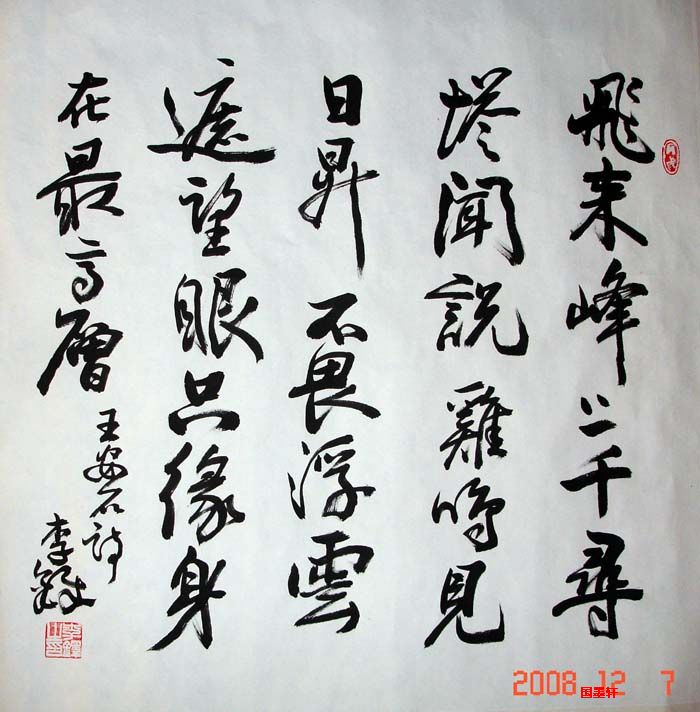 飛来峰上千尋
塔聞說雞鳴見
日昇不畏浮雲
遮望眼只緣身
在最高層
王安石詩
李鐸
2008 12 7
国墨轩